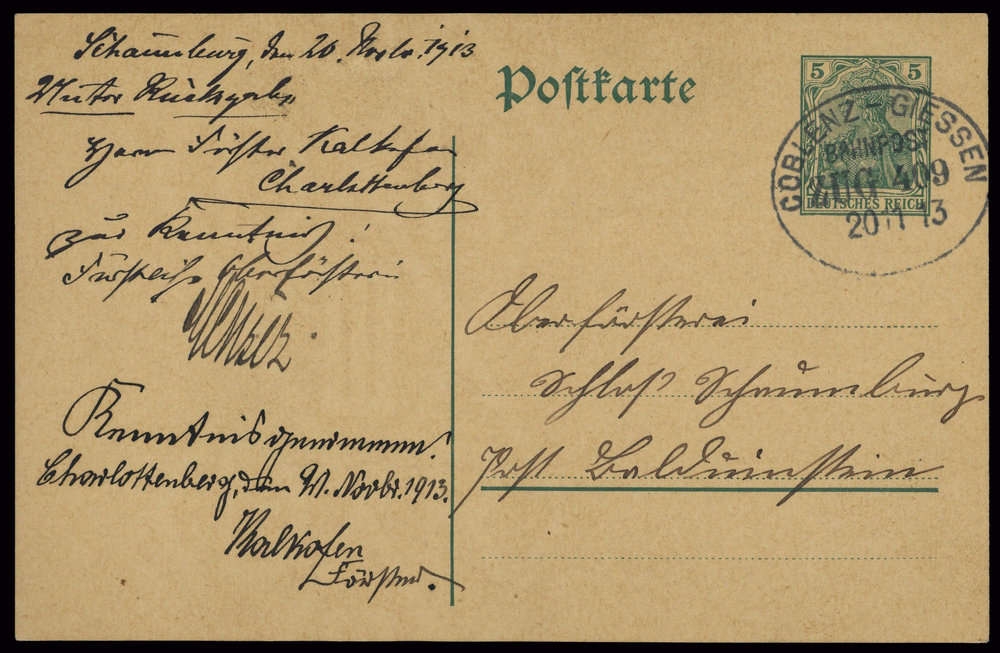 Schaumburg, den 20. Novbr. 1913
Unter Rückgabe
Herrn Förster Kalkofen
Charlottenberg
zur Kenntnis!
Fürstliche Oberförsterei
Kenntnis genommen!
Charlottenberg, den 21. Novbr. 1913.
Kalkofen
Förster.
Postkarte
5 5
DEUTSCHES REICH
COBLENZ - GIESSEN
BAHNPOST
ZUG 409
20 11 13
Oberförsterei
Schloß Schaumburg
Post Balduinstein